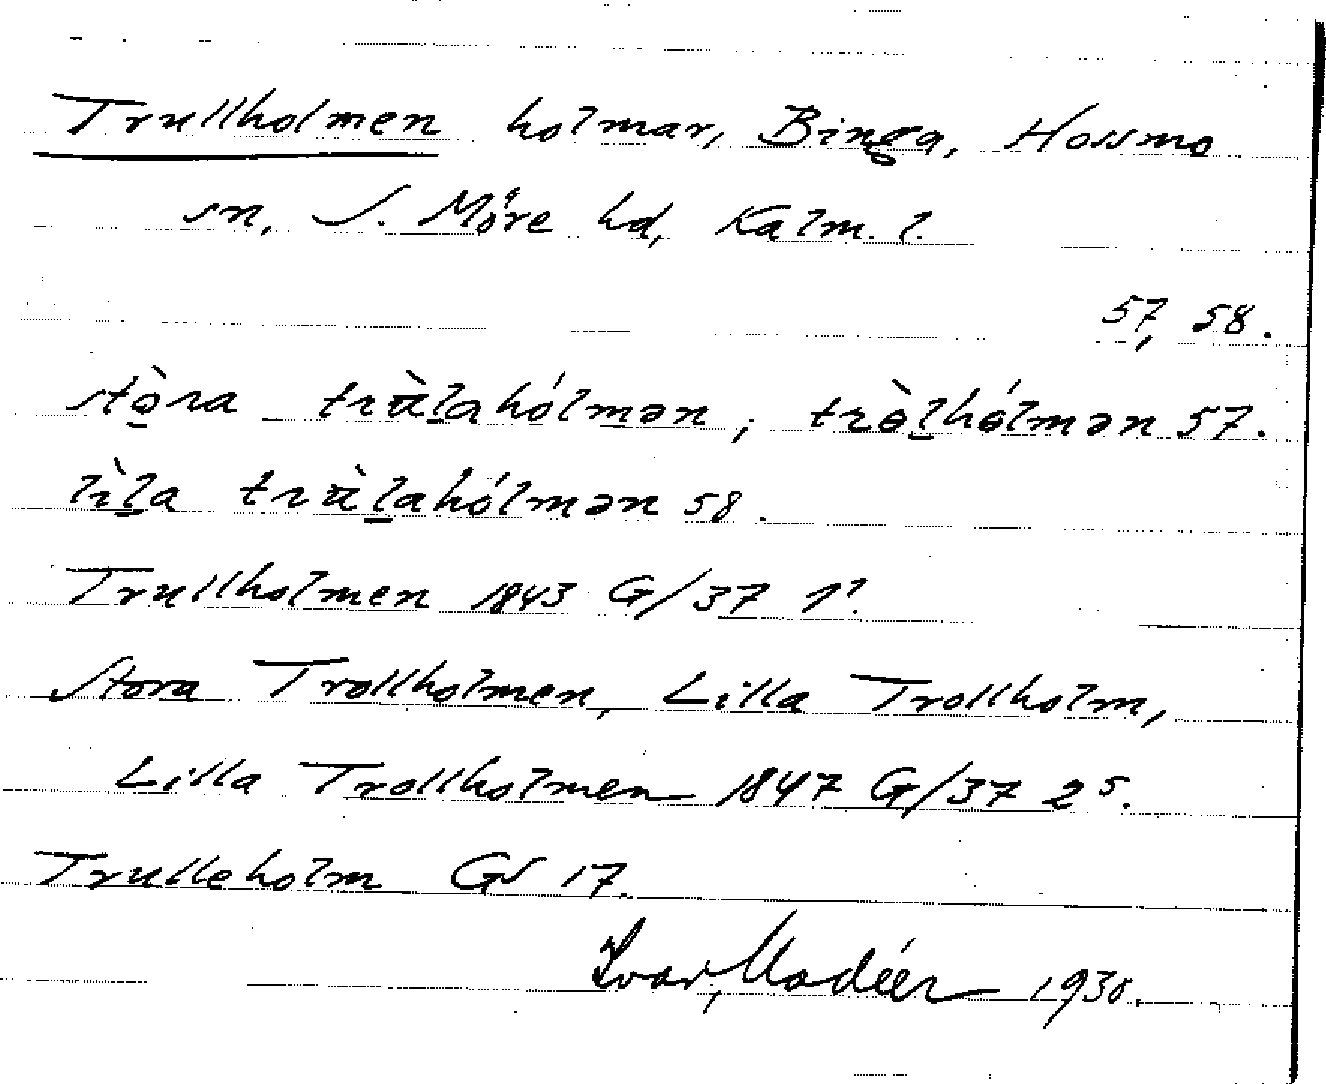 Trullholmen holmar, Binga, Hossmo
sn, S. Möre hd, Kalm. l.
57, 58.
stò̱ra trùḻahólmən, trò̱ḻhólmən 57.
lìḻa trùḻahólmən 58.
Trullholmen 1843 G/37 1¹.
Stora Trollholmen, Lilla Trollholm,
Lilla Trollholmen 1847 G/37 2⁵.
Trulleholm GS 17.
Ivar Modéer 1930.